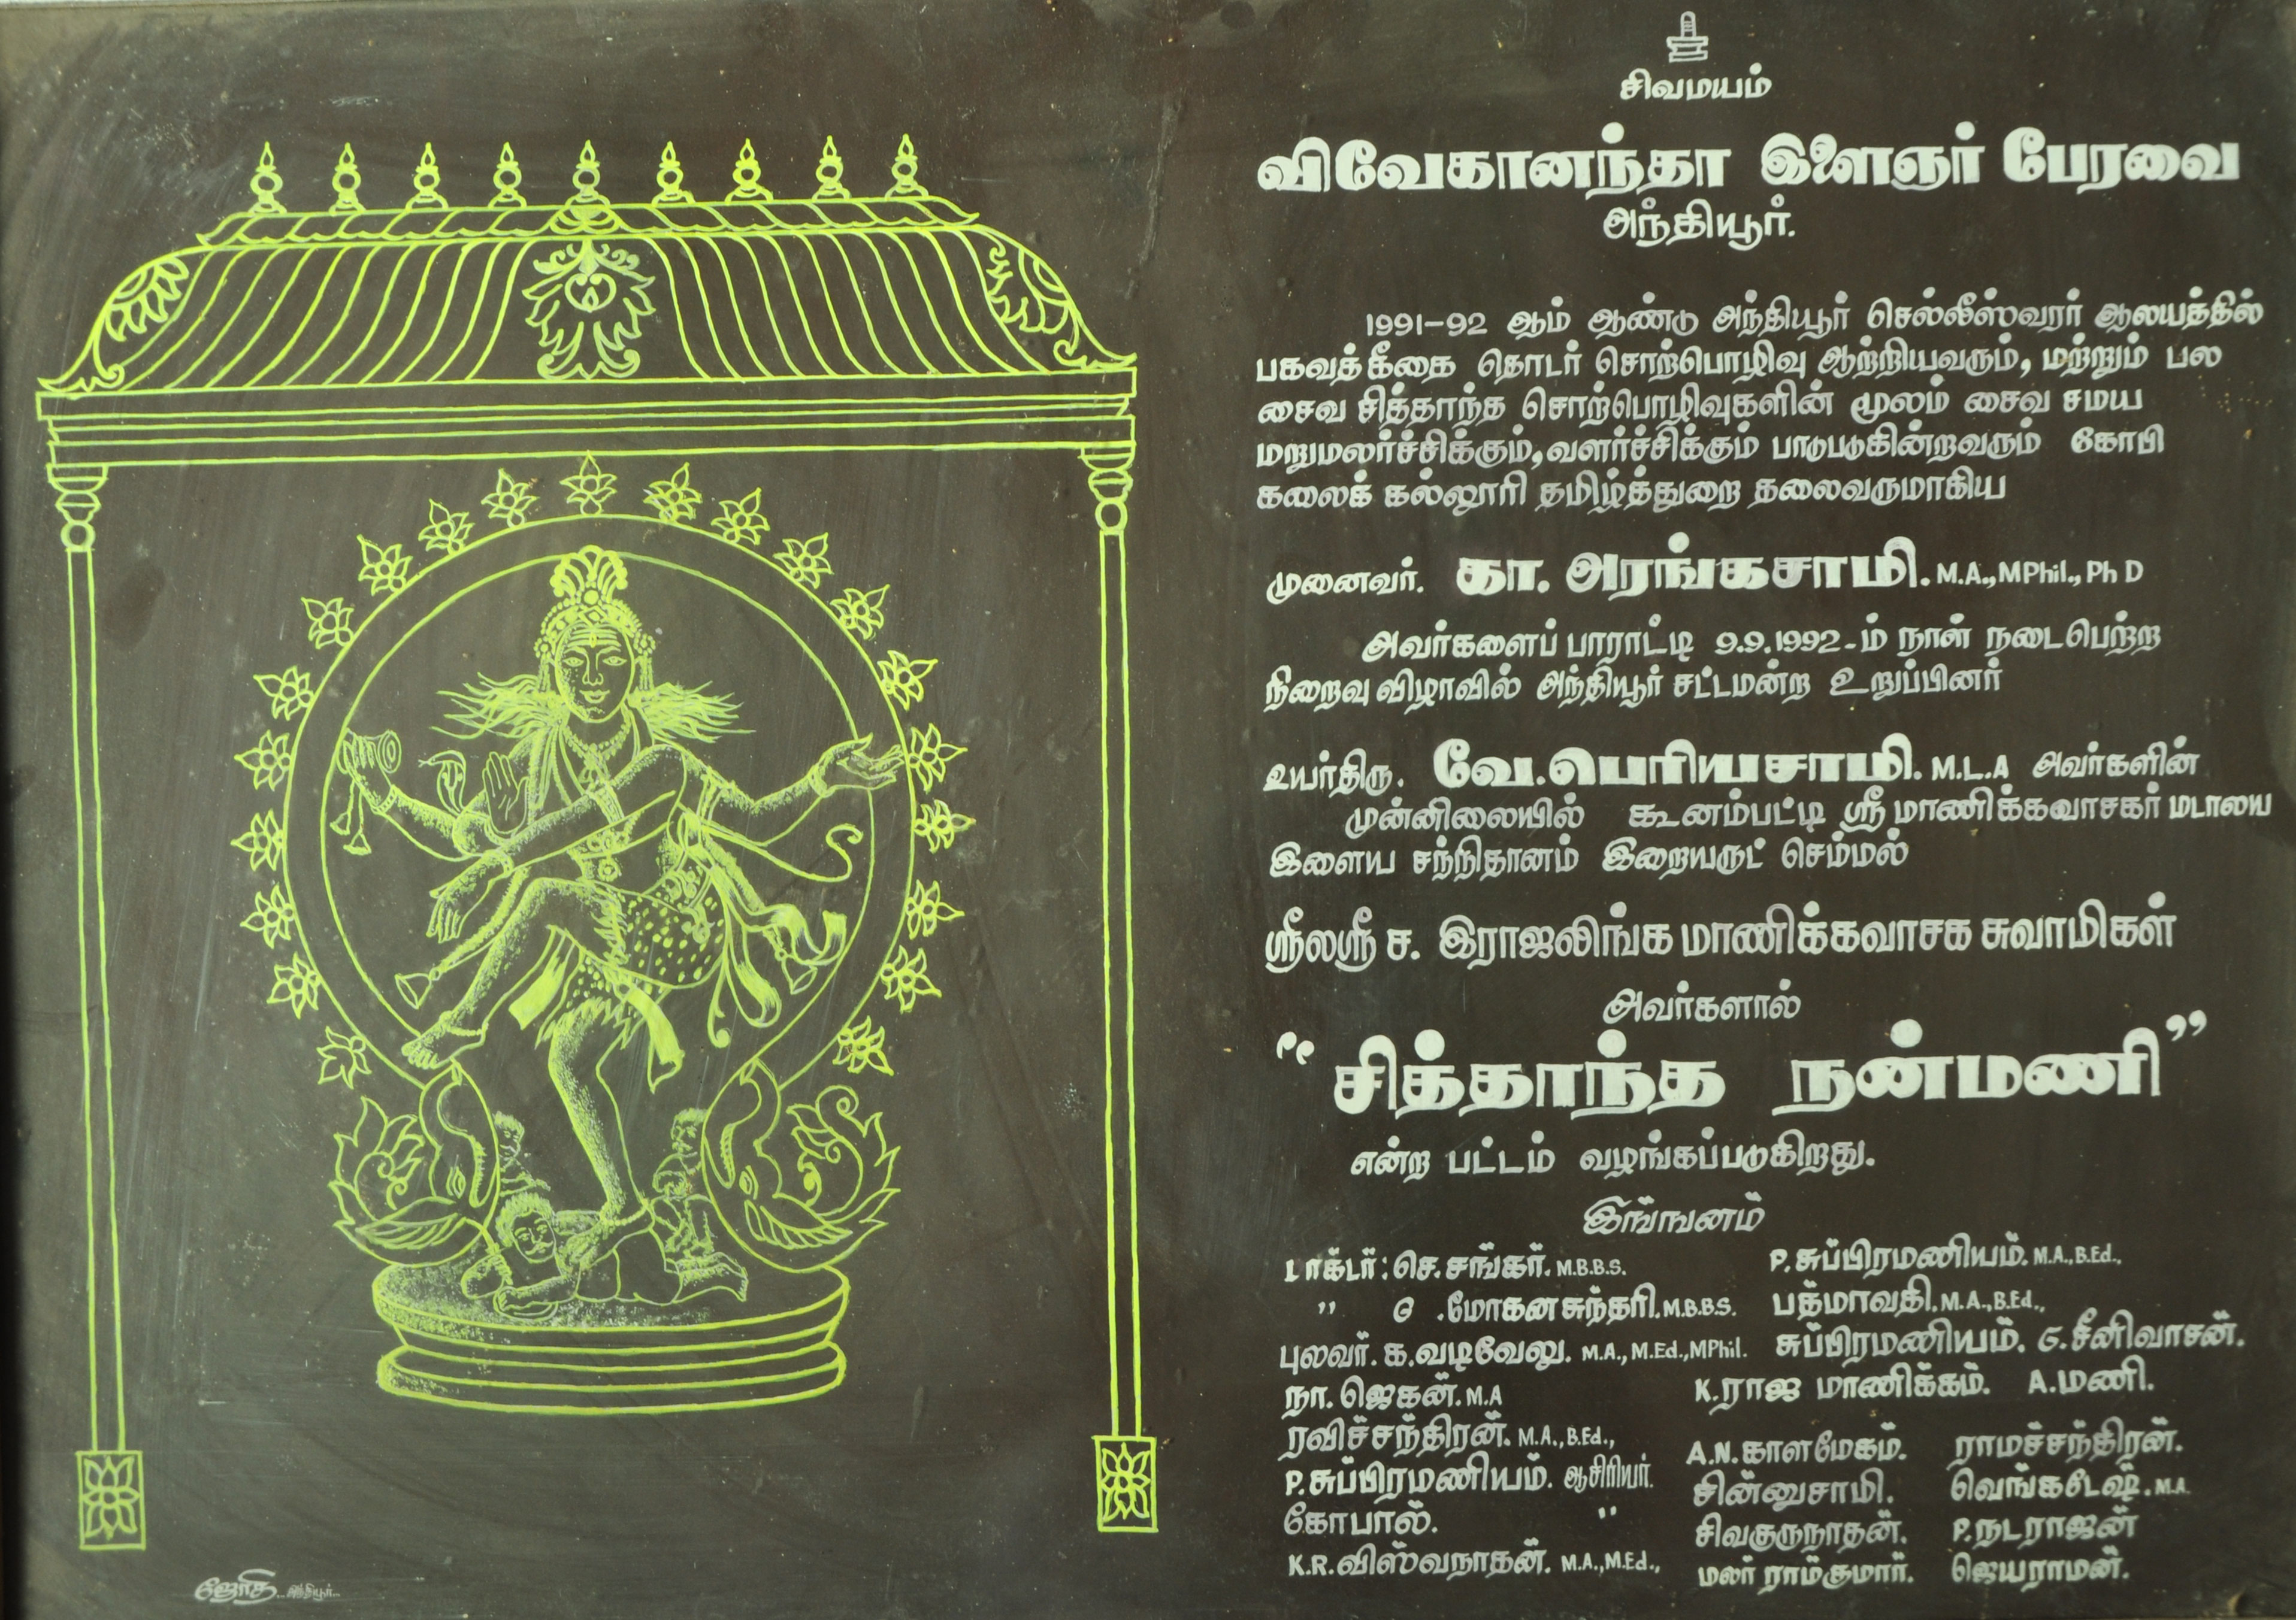 சிவமயம்
விவேகானந்தா இளைஞர் பேரவை
அந்தியூர்.
1991-92 ஆம் ஆண்டு அந்தியூர் செல்லீஸ்வரர் ஆலயத்தில்
பகவத்கீதை தொடர் சொற்பொழிவு ஆற்றியவரும், மற்றும் பல
சைவ சித்தாந்த சொற்பொழிவுகளின் மூலம் சைவ சமய
மறுமலர்ச்சிக்கும், வளர்ச்சிக்கும் பாடுபடுகின்றவரும் கோபி
கலைக் கல்லூரி தமிழ்த்துறை தலைவருமாகிய
முனைவர். கா. அரங்கசாமி. M.A., MPhil., Ph D
அவர்களைப் பாராட்டி 9.9.1992-ம் நாள் நடைபெற்ற
நிறைவு விழாவில் அந்தியூர் சட்டமன்ற உறுப்பினர்
உயர்திரு. வே.பெரியசாமி. M.L.A அவர்களின்
முன்னிலையில் கூனம்பட்டி ஸ்ரீ மாணிக்கவாசகர் மடாலய
இளைய சந்நிதானம் இறையருட் செம்மல்
ஸ்ரீலஸ்ரீ ச. இராஜலிங்க மாணிக்கவாசக சுவாமிகள்
அவர்களால்
“சித்தாந்த நன்மணி”
என்ற பட்டம் வழங்கப்படுகிறது.
இங்ஙனம்
டாக்டர்: செ.சங்கர். M.B.B.S. P.சுப்பிரமணியம். M.A., B.Ed.,
” G .மோகனசுந்தரி. M.B.B.S. பத்மாவதி. M.A., B.Ed.,
புலவர். க.வடிவேலு. M.A., M.Ed., MPhil. சுப்பிரமணியம். G.சீனிவாசன்.
நா. ஜெகன். M.A K.ராஜ மாணிக்கம். A.மணி.
ரவிச்சந்திரன். M.A., B.Ed., A.N.காளமேகம். ராமச்சந்திரன்.
P.சுப்பிரமணியம். ஆசிரியர். சின்னுசாமி. வெங்கடேஷ். M.A.
கோபால். ” சிவகுருநாதன். P.நடராஜன்
K.R.விஸ்வநாதன். M.A., M.Ed., மலர் ராம்குமார். ஜெயராமன்.
ஜோதி.. அந்தியூர்..